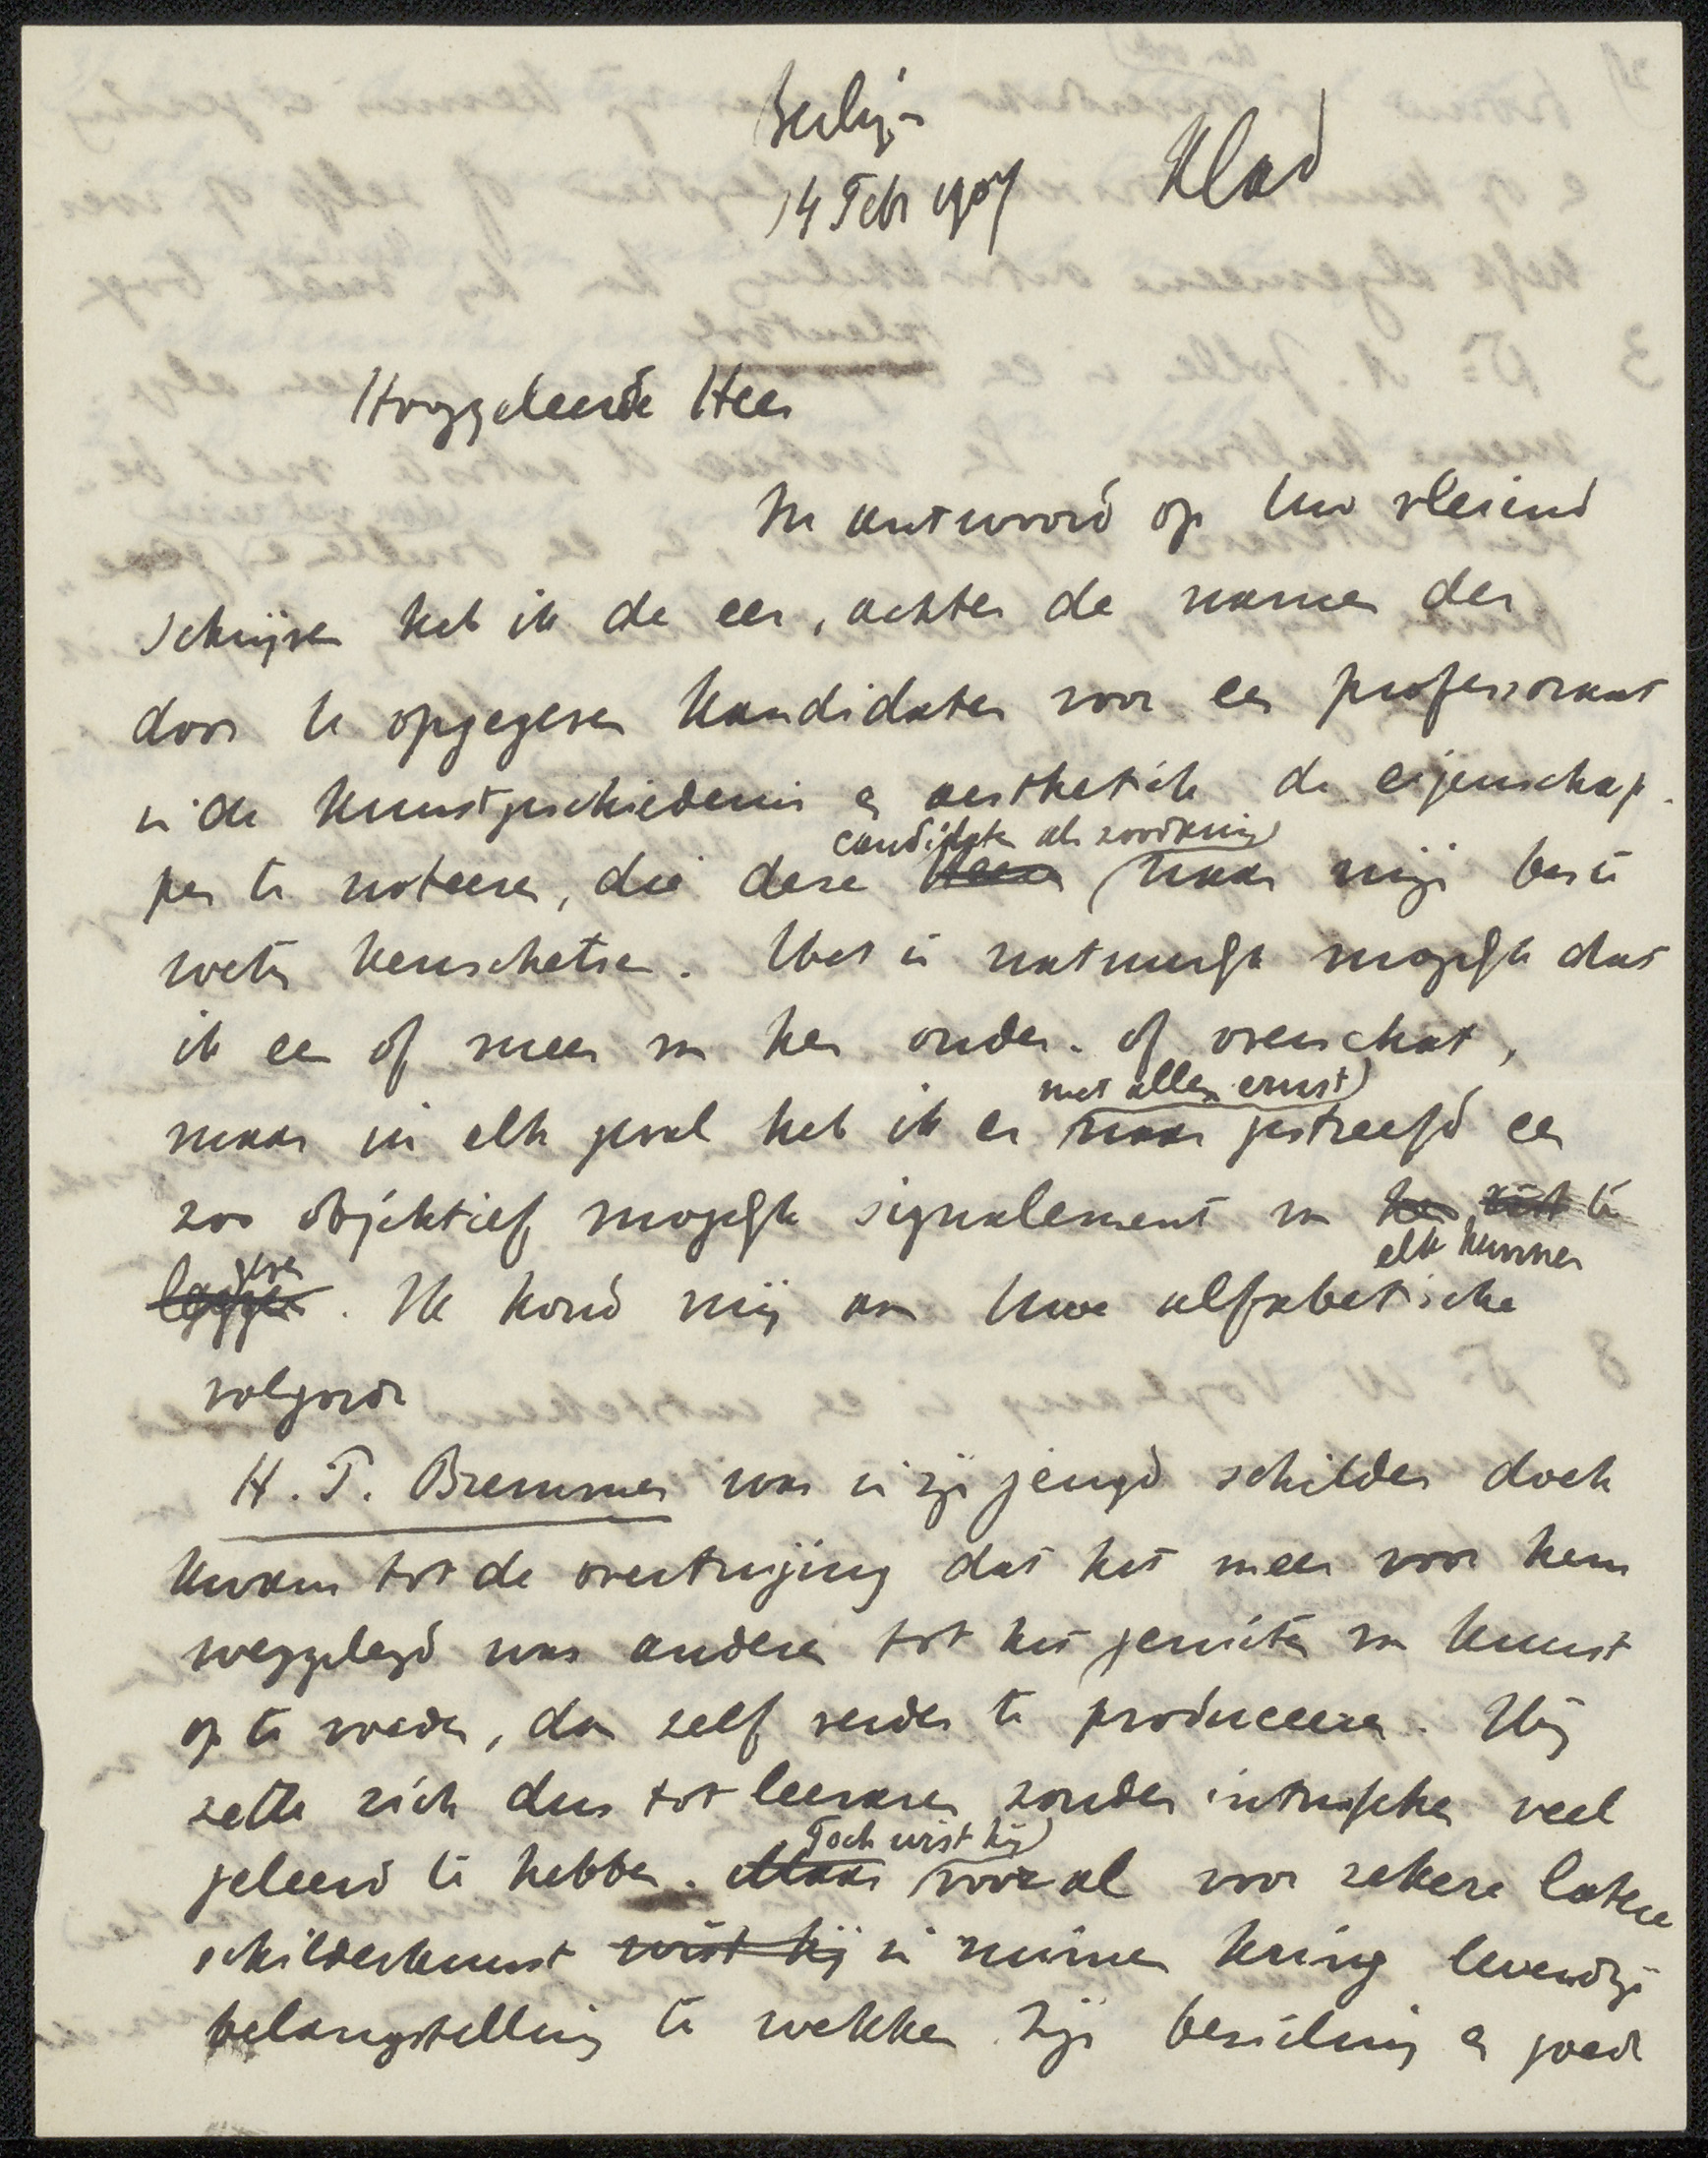 Berlijn
14 Febr 1907
Klad
Hooggeleerde Heer
In antwoord op Uw vleiend
schrijven heb ik de eer, achter de namen der
door U opgegeven kandidaten voor een professoraat
in de kunstgeschiedenis en aesthetiek de eigenschap-
candidaten als zoodanig
pen te noteeren, die deze Heeren naar mijn beste
weten kenschetsen. Het is natuurlijk mogelijk dat
ik een of meer van hen onder- of overschat,
met allen ernst
maar in elk geval heb ik er naar gestreefd een
zoo objektief mogelijk signalement van te
elk hunner
geven
leggen. Ik houd mij aan Uwe alfabetische
volgorde
H. P. Bremmer was in zijn jeugd schilder doch
kwam tot de overtuiging dat het meer voor hem
weggelegd was anderen tot het genieten van kunst
op te voeden, dan zelf verder te produceeren. Hij
zette zich dus tot leeraren zonder intusschen veel
Toch wist hij
geleerd te hebben. Maar vooral voor zekere latere
schilderkunst wist hij in ruimen kring levendige
belangstelling te wekken. Zijn bezieling en goede